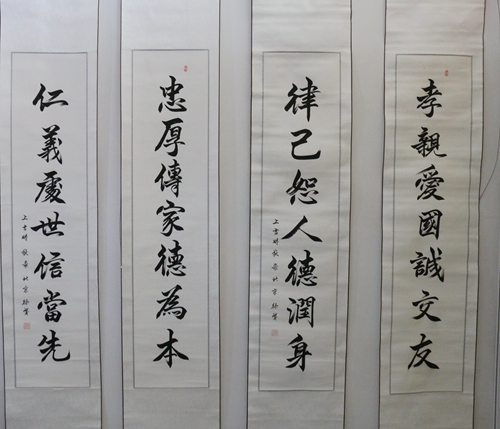 孝親愛國誠交友
律己恕人德潤身
忠厚傳家德為本
仁義處世信當先